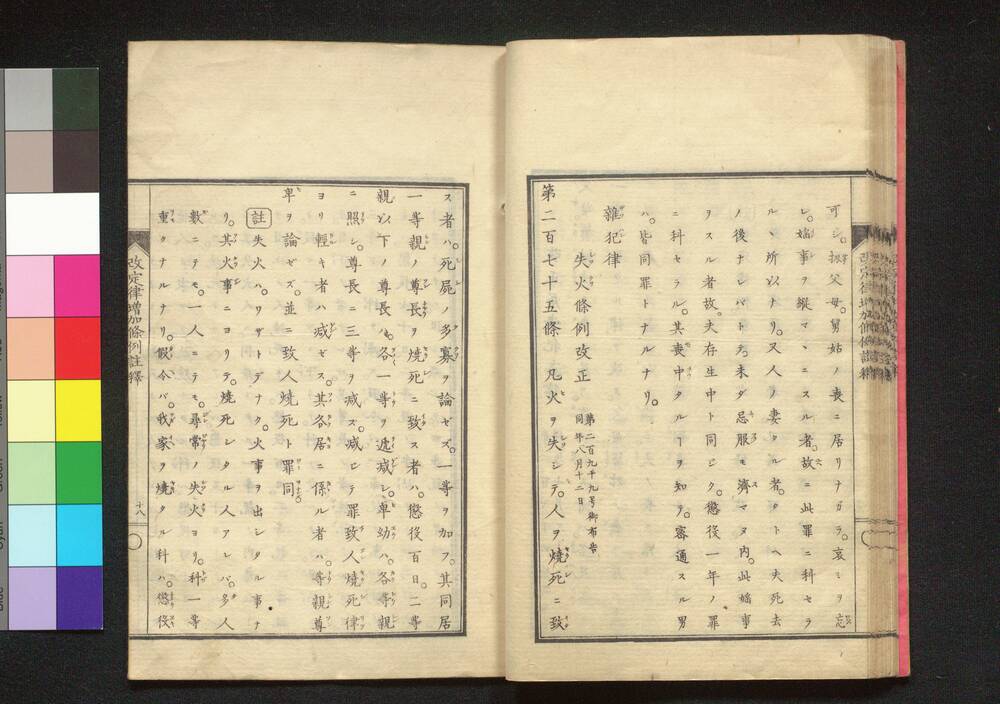 可シ。祖父母。舅姑ノ喪ニ居リナガラ。哀ミヲ忘
レ。婬事ヲ縱マヽニスル者。故ニ此罪ニ科セラ
ルヽ所以ナリ。又人ノ妻タル者。タトヘ夫死去
ノ後ナレバトテ。未ダ忌服モ濟マヌ内。此婬事
ヲスル者故。夫存生中ト同ジク。懲役一年ノ罪
ニ科セラル。其喪中タルヿヲ知テ。密通スル男
ハ。皆同罪トナルナリ。
雜犯律
失火條例改正
第二百九十九号御布告
同年八月十二日
第二百七十五條 凡火ヲ失シテ。人ヲ燒死ニ致
ス者ハ。死屍ノ多寡ヲ論ゼズ。一等ヲ加フ。其同居
一等親ノ尊長ヲ燒死ニ致ス者ハ。懲役百日。二等
親以下ノ尊長ハ。各一等ヲ遞減シ。卑幼ハ。各等親
ニ照シ。尊長ニ三等ヲ減ズ。減ジテ罪致人燒死律
ヨリ輕キ者ハ減ゼズ。其各居ニ係ル者ハ。等親尊
卑ヲ論ゼズ。並ニ致人燒死ト罪同。
註 失火ハ。ワザトデナク。火事ヲ出シタル事ナ
リ。其火事ニヨリテ。燒死シタル人アレバ。多人
數ニテモ。一人ニテモ。尋常ノ失火ヨリ。科一等
重クナルナリ。假令バ。我家ヲ燒タル科ハ。懲役
改定律增加條例註釋
十八
改定律增加條例註釋